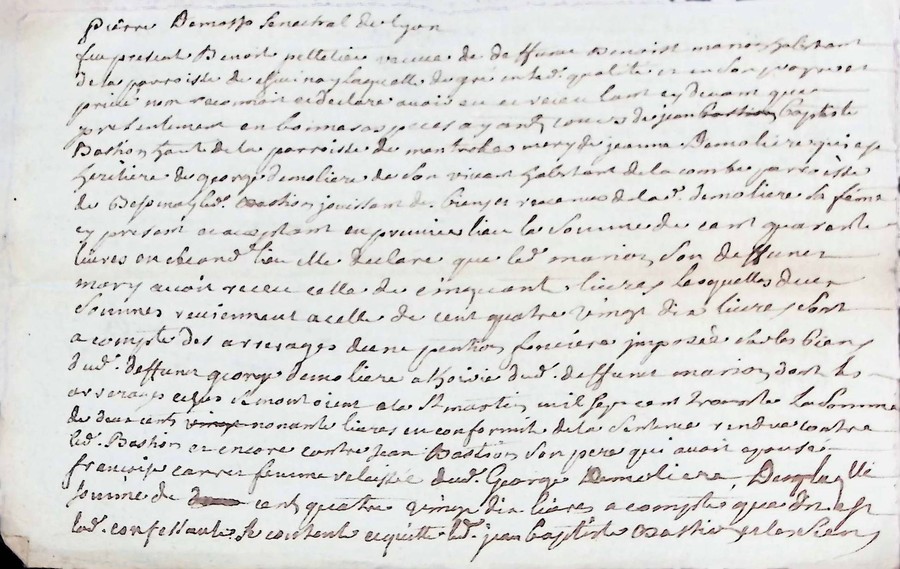 pierre Demasso senechal de lyon
fut present Benoite pelletier veuve de deffunt Benoist marion habitant
de la parroisse de laquelle de gré en lad. qualité et en son propre et
privé nom reconnoit et declare avoir eu et receu tant cydevant que
presentement en bonnes especes ayant cours de jean Baptiste
Bastion habitant de la parroisse de mary de jeanne Demoliere qui est
heritiere de george demoliere de son vivant habitant de la combe parroisse
de led. Bastion jouissant des biens et revenus de la d. demoliere sa féme
cy present et acceptant en premier lieu la somme de cent quarante
livres en second lieu elle declare que led. marion son deffunt
mary avoit receu celle de cinquante livres lesquelles deux
sommes reviennent a celle de cent quatre vingt dix livres et sont
a compte des arrerages dune pention fonciere imposée sur les biens
dud. deffunt george demoliere dud. deffunt marion dont les
arrerages se montoient a la St martin mil sept cent trente la somme
de deux cents nonante livres en conformité de la sentence rendue contre
led. Bastion et encore contre jean Bastion son pere qui avoit epousé
françoise femme relaissée dud. George Demoliere, De laquelle
somme de cent quatre vingt dix livres a compte que dit est
lad. confessante se contente et quitte led. jean Baptiste Bastion et les siens